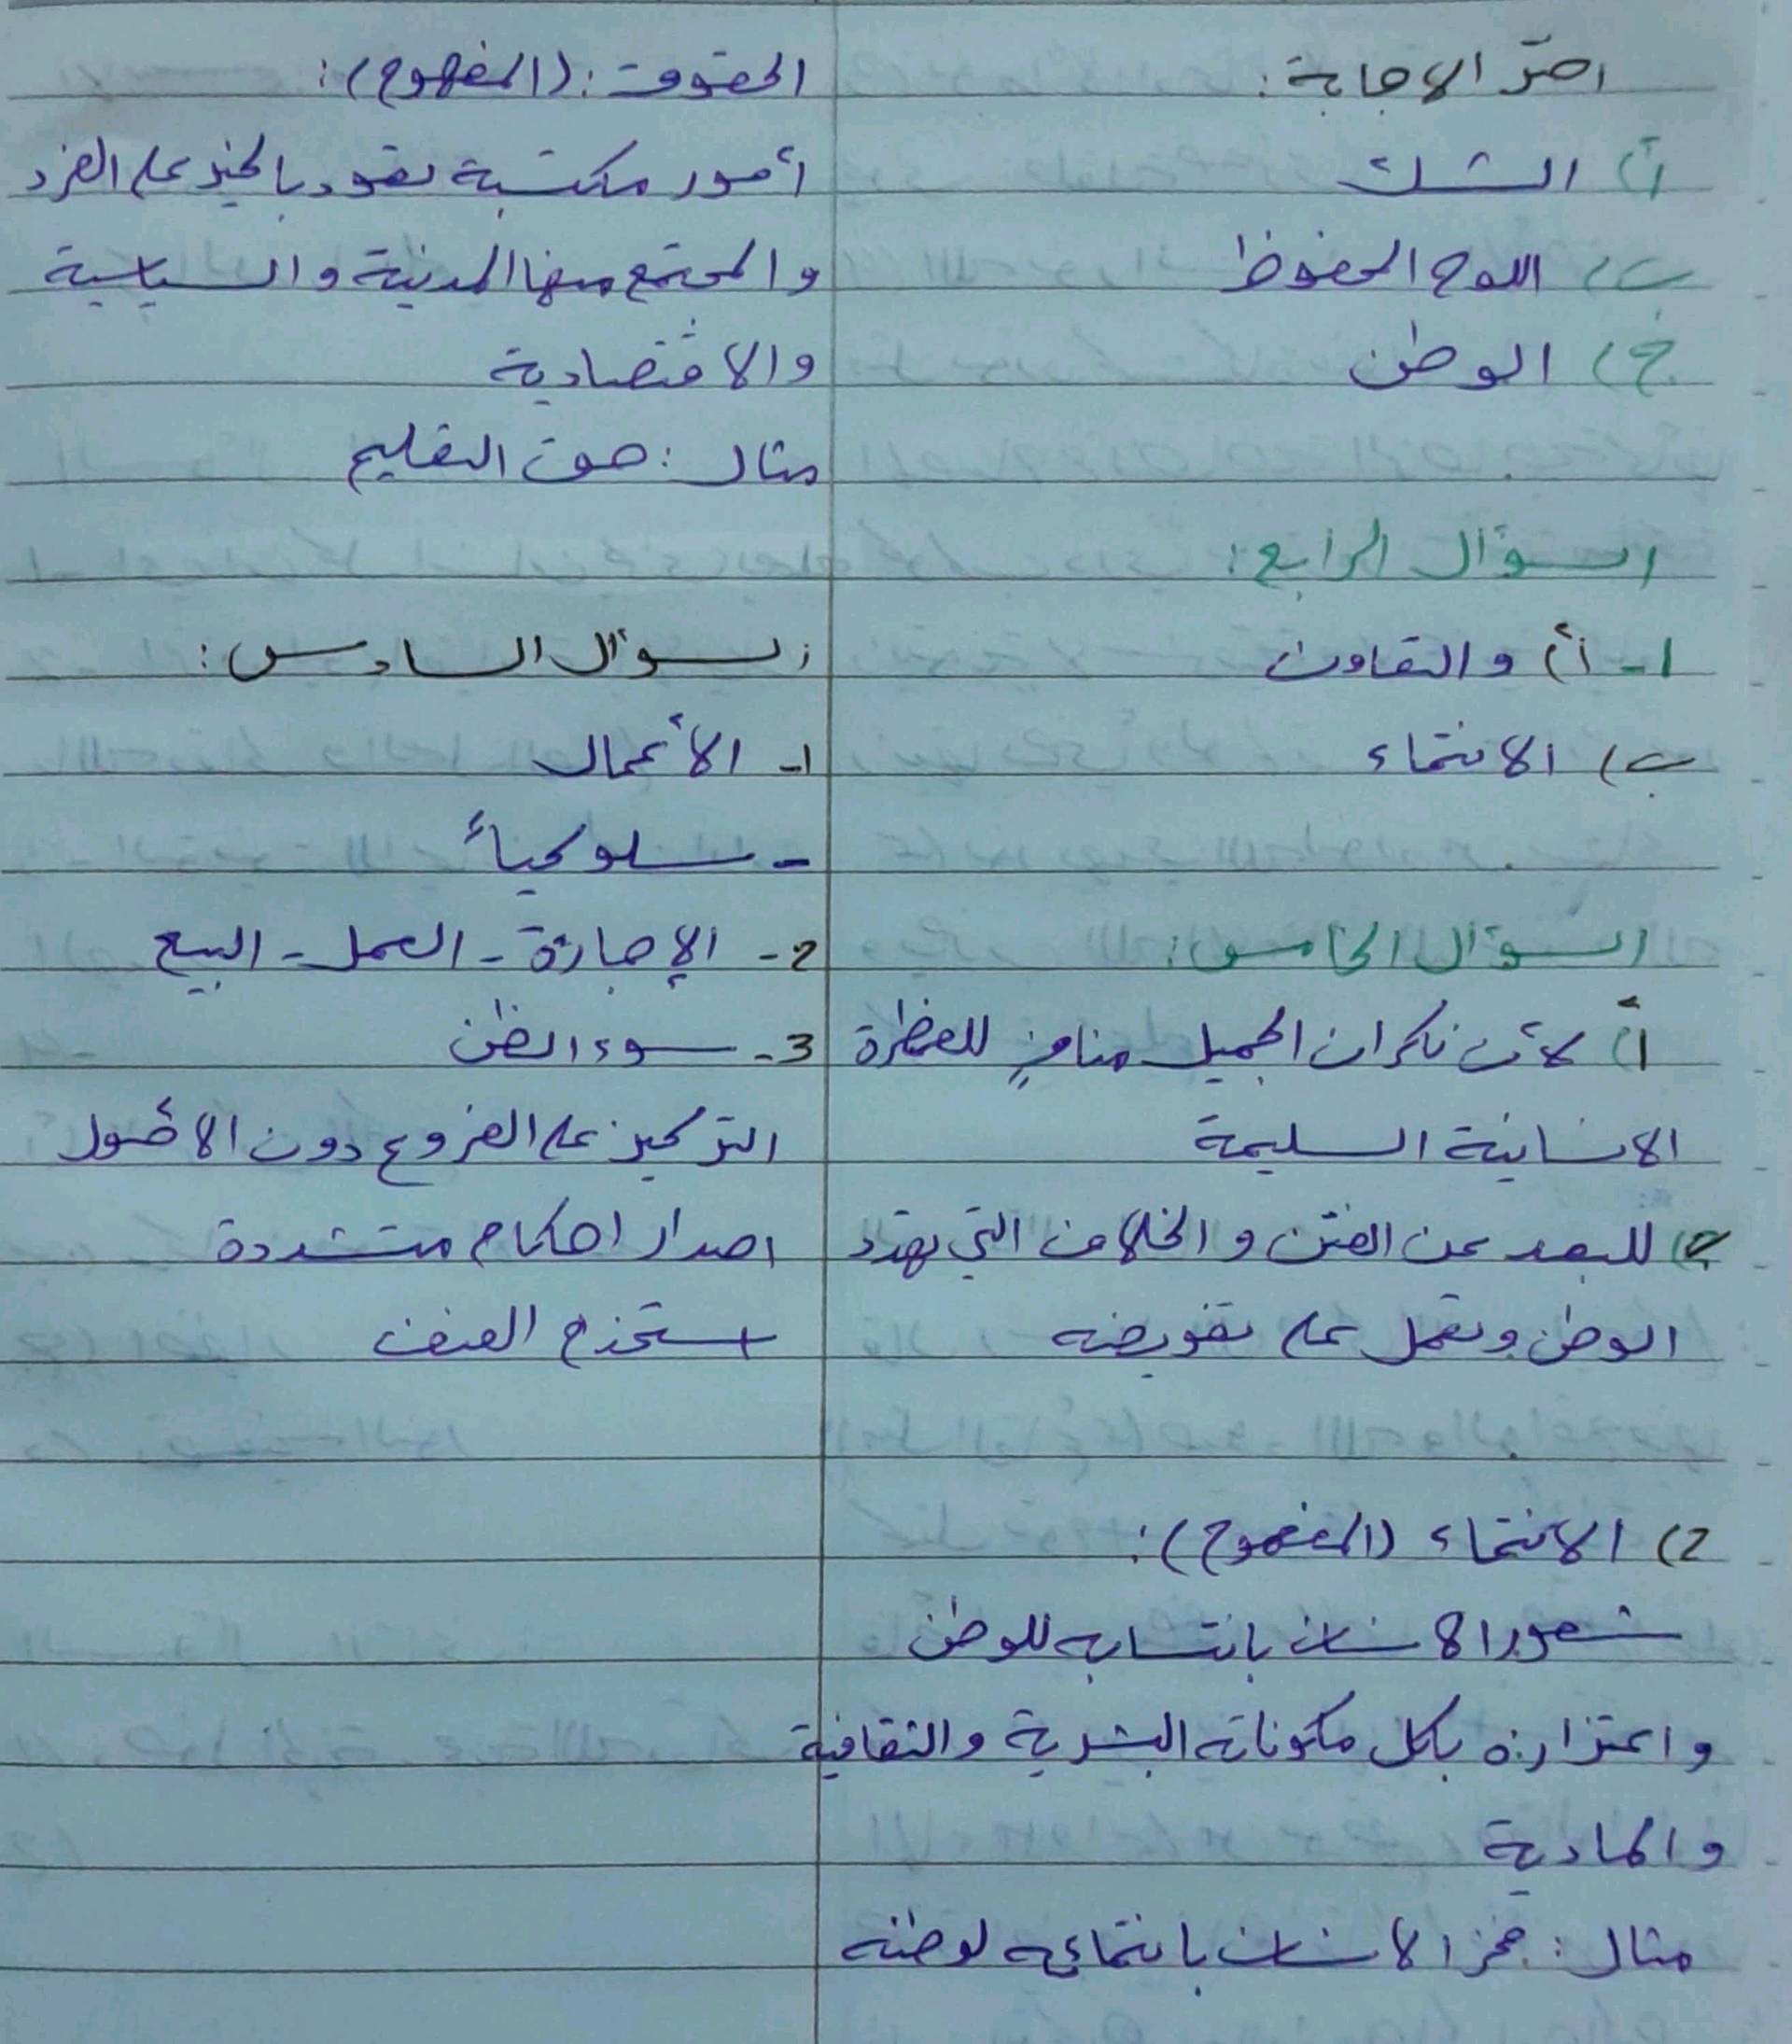 اختر الإجابة:
أ) الشك
ب) اللوح المحفوظ
ج) الوطن
السؤال الرابع:
1- أ) والتعاون
ب) الانتماء
السؤال الخامس:
أ) لأن نكران الجميل منافٍ للفطرة
الانسانية السليمة
ج) للبعد عن الفتن والخلاف التي تهدد
الوطن وتعمل على تقويضه
2) الانتماء (المفهوم):
شعور الانسان بانتسابه للوطن
واعتزازه بكل مكوناته البشرية والثقافية
والمادية
مثال: فخر الانسان بانتمائه لوطنه
الحقوق: (المفهوم):
أمور مكتسبة تعود بالخير على الفرد
والمجتمع منها المدنية والسياسية
والاقتصادية
مثال: حق التعليم
السؤال السادس:
1- الأعمال
- سلوكياً
2- الإجارة - العمل - البيع
3- سوء الظن
التركيز على الفروع دون الأصول
اصدار احكام متشددة
استخدام العنف